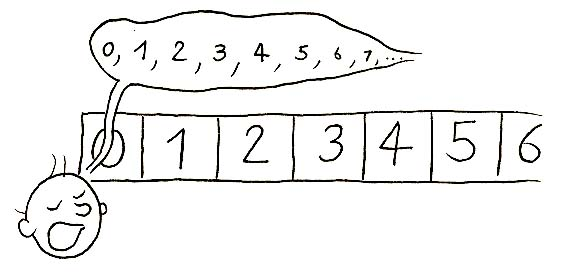 0, 1, 2, 3, 4, 5, 6, 7, ...
0 1 2 3 4 5 6